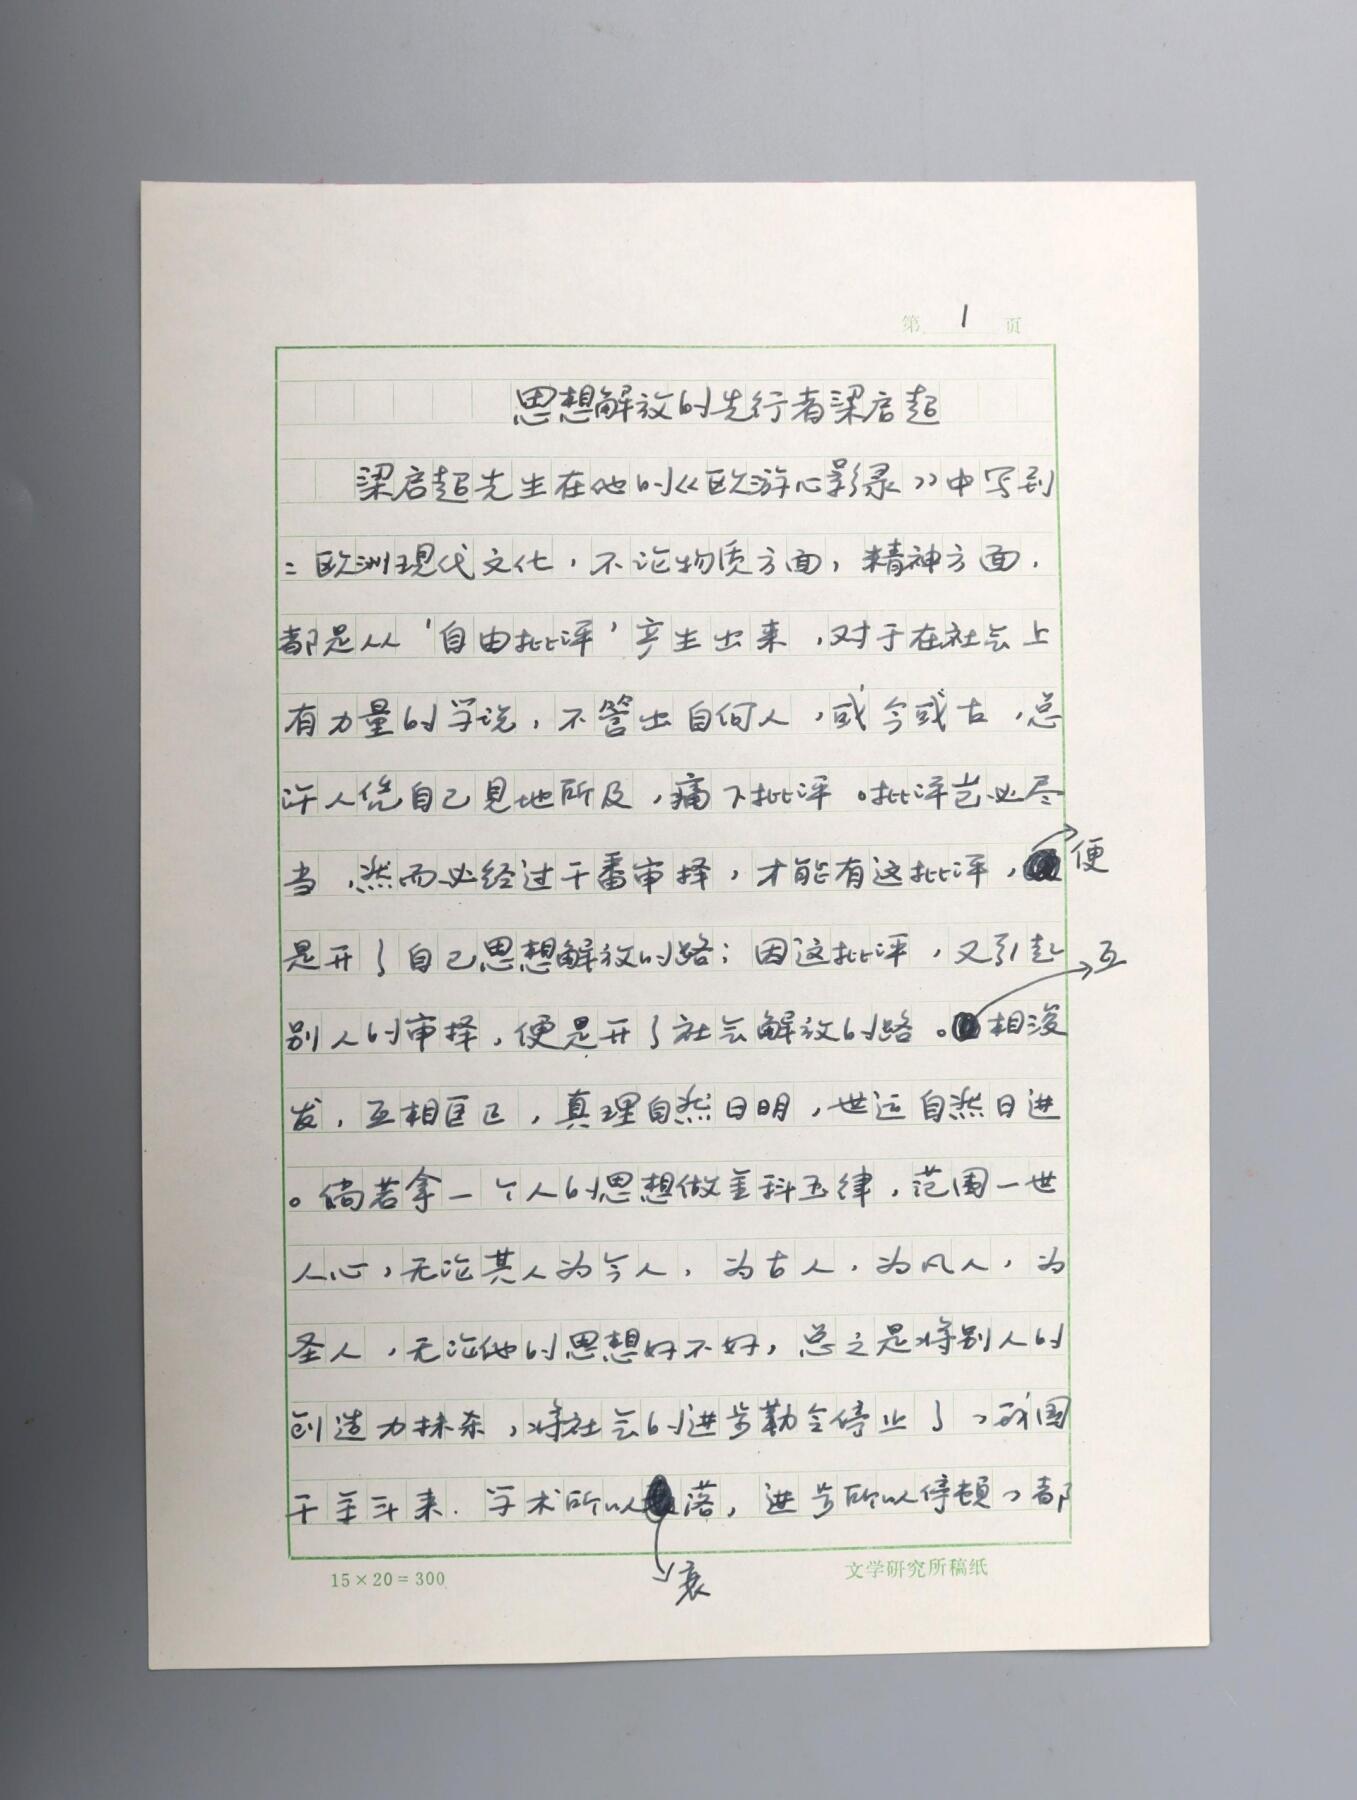 第 1 页
思想解放的先行者梁启超
梁启超先生在他的《欧游心影录》中写到
：欧洲现代文化，不论物质方面，精神方面，
都是从‘自由批评’产生出来，对于在社会上
有力量的学说，不管出自何人，或今或古，总
许人凭自己见地所及，痛下批评。批评岂必尽
当，然而必经过一番审择，才能有这批评，便
是开了自己思想解放的路；因这批评，又引起
别人的审择，便是开了社会解放的路。互相浚
发，互相匡正，真理自然日明，世运自然日进
。倘若拿一个人的思想做金科玉律，范围一世
人心，无论其人为今人，为古人，为凡人，为
圣人，无论他的思想好不好，总之是将别人的
创造力抹杀，将社会的进步勒令停止了，我国
千年来，学术所以衰落，进步所以停顿，都
15×20=300
文学研究所稿纸